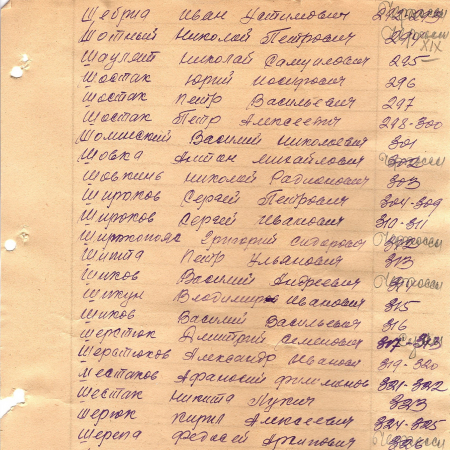 Шебрид Иван Устимович
Шотный Николай Петрович 294
XIX
Шауляит Николай Самуилович 295
Шостак Юрий Иосифович 296
Шостак Петр Васильевич 297
Шостак Петр Алексеевич 298-300
Шоминский Василий Николаевич 301
Шовка Антон Михайлович 302
Шовкинь Николай Радионович 303
Широков Сергей Петрович 304-309
Широков Сергей Иванович 310-311
Широкопояс Григорий Сидорович
Шипта Петр Ульянович 313
Шиков Василий Андреевич
Шикун Владимир Иванович 315
Шиков Василий Васильевич 316
Шерстюк Дмитрий Семенович
Шерстяков Александр Иванови 319-320
Шестаков Афанасий Филимонов 321-322
Шестак Никита Лукич 323
Шерюк Кирил Алексеевич 324-325
Шерепа Федосей Архипович 326